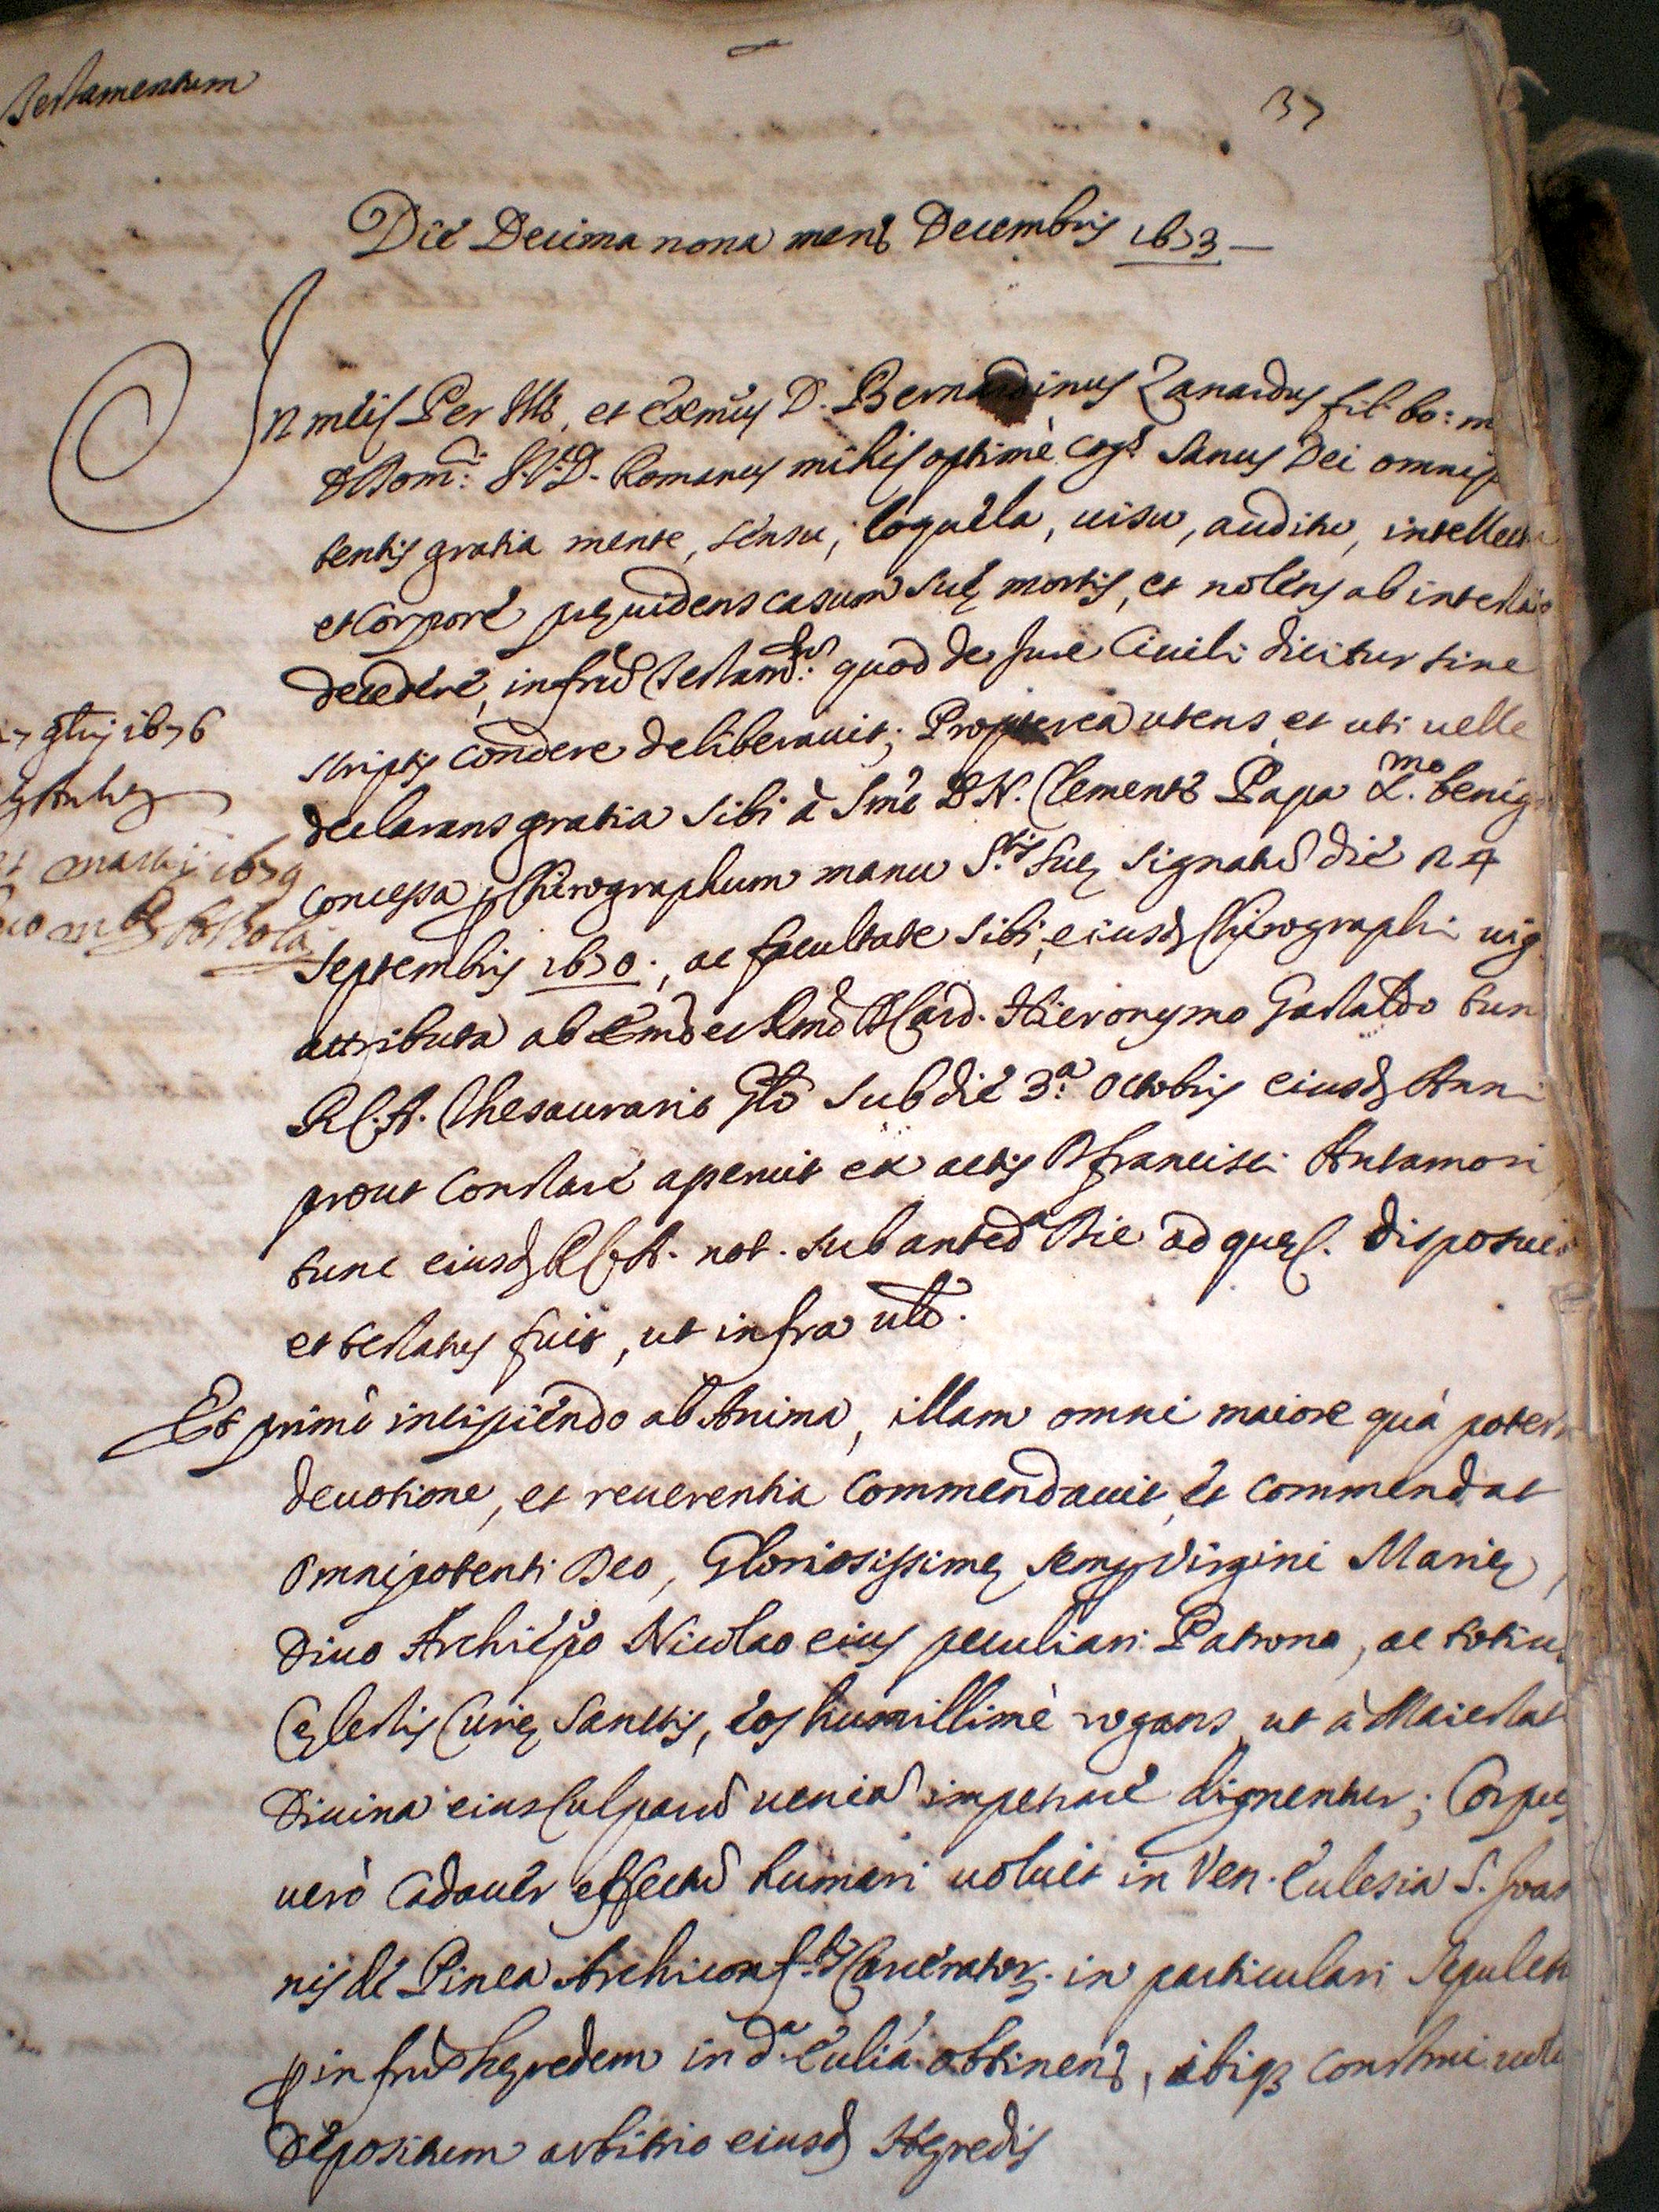 Testamentum
37
Die Decima nona mens Decembris 1673
In meis Per Ill, et Exmus D. Bernardinus Zanardus fil. bo: m
Romanus mihi optimè cogs Sanus Dei omnip
tentis gratia mente, sensu, loquela, uisu, auditu, intellectu
et Corpore pręuidens casum suę mortis, et nolens ab intestato
decedere, infrum Testamtum quod de Jure Ciuili dicitur sine
scriptis condere deliberauit; Propterea utens, et uti uelle
declarans gratia sibi à Smo D N. Clemente Papa X.mo benig
concessa p Chirographum manu S.tis Suę signatum die 24
Septembris 1670., ac facultate sibi, eiusd Chirographi uig
attributa ab Emo et Rmo D Card. Hieronymo Gastaldo tun
R.C.A. Thesaurario Gnli sub die 3.a Octobris eiusd Anni
prout constare aperuit ex actis D francisci Antamori
tunc eiusd R.C.A. not. sub anteda Die ad quę. disposuit
et testatus fuit, ut infra ult.
Et primò incipiendo ab Anima, illam omni maiore quà potest
deuotione, et reuerentia commendauit, et commendat
Omnipotenti Deo, Gloriosissimę semp Virgini Marię,
Diuo Archiepo Nicolao eius peculiari Patrono, ac totius
Cęlestis Curię Sanctis, eos humillimè rogans, ut à Maiestat
Diuina eius Culparum ueniam impetrare dignentur; Corpus
uerò Cadauer effectum humari uoluit in Ven. Ecclesia S. Joan
nis de Pinea Archiconf.tis Carcerator. in particulari Sepulch
p infrum hęredem in d.a Ecclia obtinend, ibiq construi
Depositum arbitrio eiusd Hęredis
9bris 1676
Martij 1679